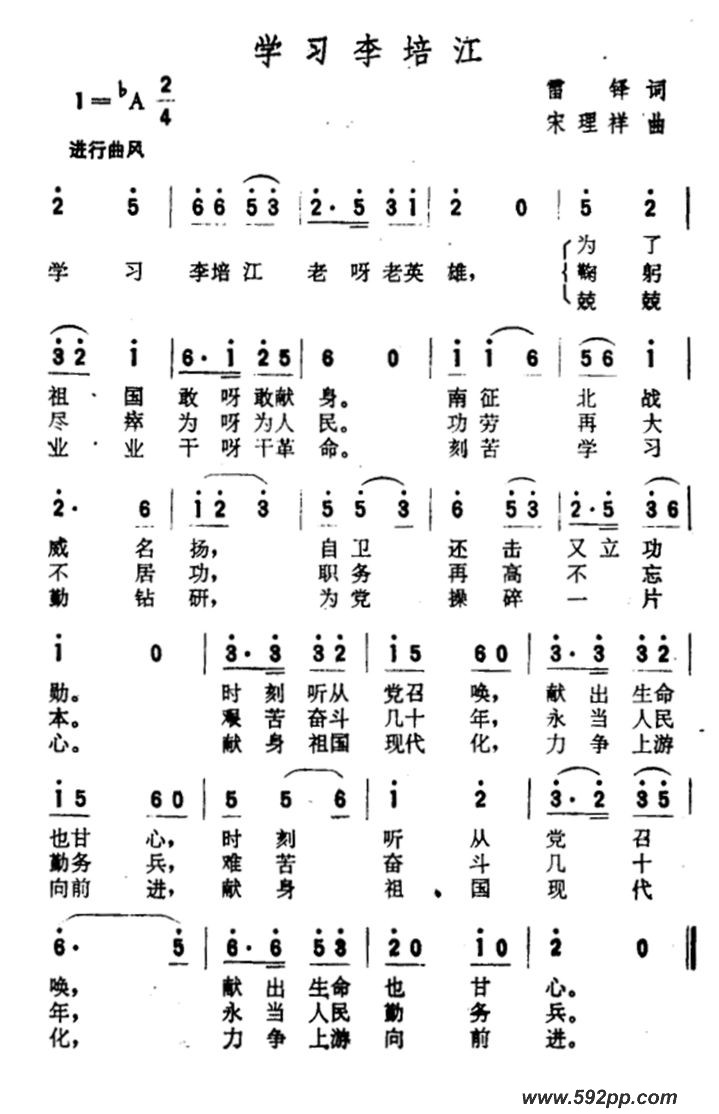 学习李培江
1=♭A 2/4
雷铎词
宋理祥曲
进行曲风
2̇ 5̇ | 6̇6̇ 5̇3̇ | 2̇·5̇ 3̇1̇ | 2̇ 0 | 5̇ 2̇ |
学习李培江老呀老英雄,
为了
鞠躬
兢兢
3̇2̇ 1̇ | 6·1̇ 2̇5 | 6 0 | 1̇ 1̇6 | 56 1̇ |
祖国敢呀敢献身。南征北战
尽瘁为呀为人民。功劳再大
业业干呀干革命。刻苦学习
2̇· 6 | 1̇2̇ 3̇ | 5̇ 5̇3̇ | 6̇ 5̇3̇ | 2̇·5̇ 3̇6 |
威名扬,自卫还击又立功
不居功,职务再高不忘
勤钻研,为党操碎一片
1̇ 0 | 3̇·3̇ 3̇2̇ | 1̇5 60 | 3̇·3̇ 3̇2̇ |
勋。时刻听从党召唤,献出生命
本。艰苦奋斗几十年,永当人民
心。献身祖国现代化,力争上游
1̇5 60 | 5 56 | 1̇ 2̇ | 3̇·2̇ 3̇5̇ |
也甘心,时刻听从党召
勤务兵,难苦奋斗几十
向前进,献身祖国现代
6̇· 5̇ | 6̇·6̇ 5̇3̇ | 2̇0 1̇0 | 2̇ 0 ‖
唤,献出生命也甘心。
年,永当人民勤务兵。
化,力争上游向前进。
www.592pp.com